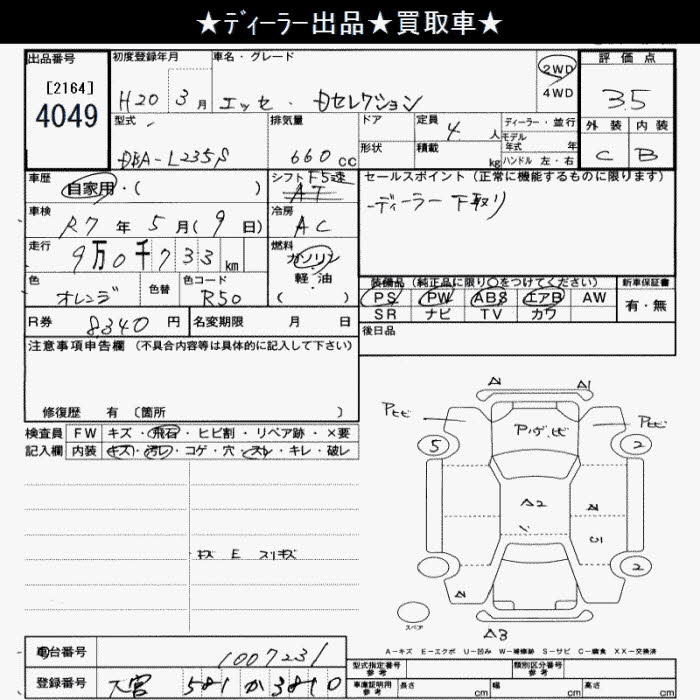 ★ディーラー出品★買取車★
出品番号 初度登録年月 車名・グレード 2WD 4WD 評価点
[2164]
4049
H20 3月 エッセ・Dセレクション 3.5
型式 排気量 ドア 定員 4人 ディーラー・並行 外装 内装
モデル年式 年
DBA-L235S 660cc 形状 積載 kg ハンドル 左・右 C B
車歴 自家用・( ) シフト F5速 AT セールスポイント(正常に機能するものに限ります)
車検 R7年5月(9日) 冷房 AC ディーラー下取り
走行 9万0千733km 燃料 ガソリン 軽・油 ( )
色 オレンジ 色替 色コード R50
装備品(純正品に限り○をつけてください) 新車保証書
PS PW ABS エアB AW 有・無
SR ナビ TV カワ
R券 8340円 名変期限 月 日 後日品
注意事項申告欄(不具合内容等は具体的に記入して下さい)
修復歴 有(箇所 )
検査員 FW キズ・飛石・ヒビ割・リペア跡・×要
記入欄 内装 キズ・汚レ・コゲ・穴・スレ・キレ・破レ
キズ E スリキズ
A1
Pヒビ Pヒビ
5 2
A2
2
スペア
A3
A-キズ E-エクボ U-凹み W-補修跡 S-サビ C-腐食 XX-交換済
車台番号 1007231
型式指定番号 参考 類別区分番号 参考
登録番号 大宮 581 か 3810
車庫証明用 参考 長さ cm 幅 cm 高さ cm